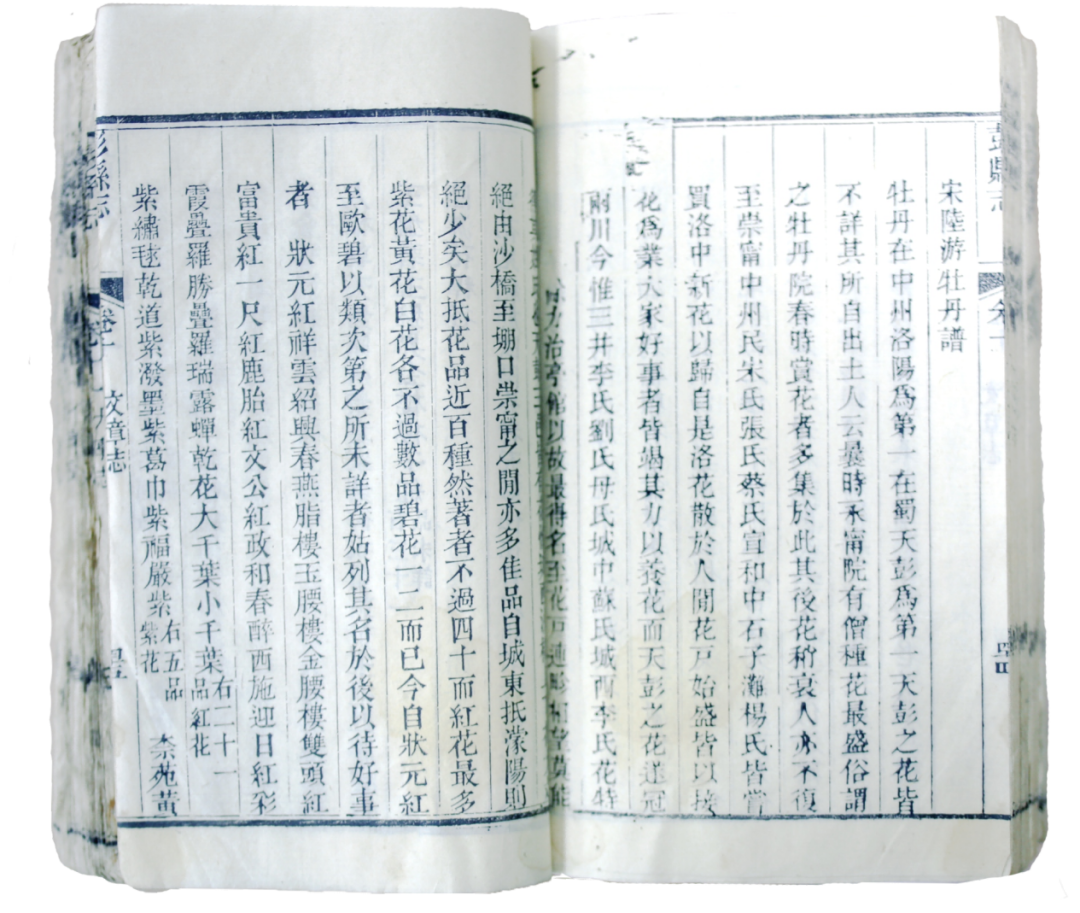 宋陸游牡丹譜
牡丹在中州洛陽爲第一在蜀天彭爲第一天彭之花皆
不詳其所自出土人云曩時永甯院有僧種花最盛俗謂
之牡丹院春時賞花者多集於此其後花稍衰人亦不復
至崇甯中州民宋氏張氏蔡氏宣和中石子灘楊氏皆嘗
買洛中新花以歸自是洛花散於人間花戸始盛皆以接
花爲業大家好事者皆竭其力以養花而天彭之花遂冠
兩川今惟三井李氏劉氏母氏城中蘇氏城西李氏花特
治亭館以故最得名至花戸連
絕由沙橋至堋口崇甯之閒亦多佳品自城東抵濛陽則
絕少矣大抵花品近百種然著者不過四十而紅花最多
紫花黃花白花各不過數品碧花一二而已今自狀元紅
至歐碧以類次第之所未詳者姑列其名於後以待好事
者　狀元紅祥雲紹興春燕脂樓玉腰樓金腰樓雙頭紅
富貴紅一尺紅鹿胎紅文公紅政和春醉西施迎日紅彩
霞疊羅勝疊羅瑞露蟬乾花大千葉小千葉右二十一品紅花
紫繡毬乾道紫潑墨紫葛巾紫福嚴紫右五品紫花　禁苑黃
彭縣志
卷十
文章志
四五
彭縣志
卷十
四四